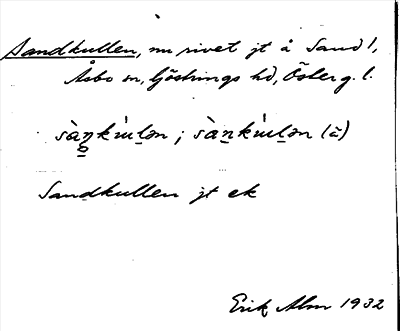 Sandkullen, nu rivet jt å Sand 1,
Åsbo sn, Göstrings hd, Österg. l.
sàŋkùlən ; sàn̠kùlən (ä)
Sandkullen jt ek
Erik Alm 1932